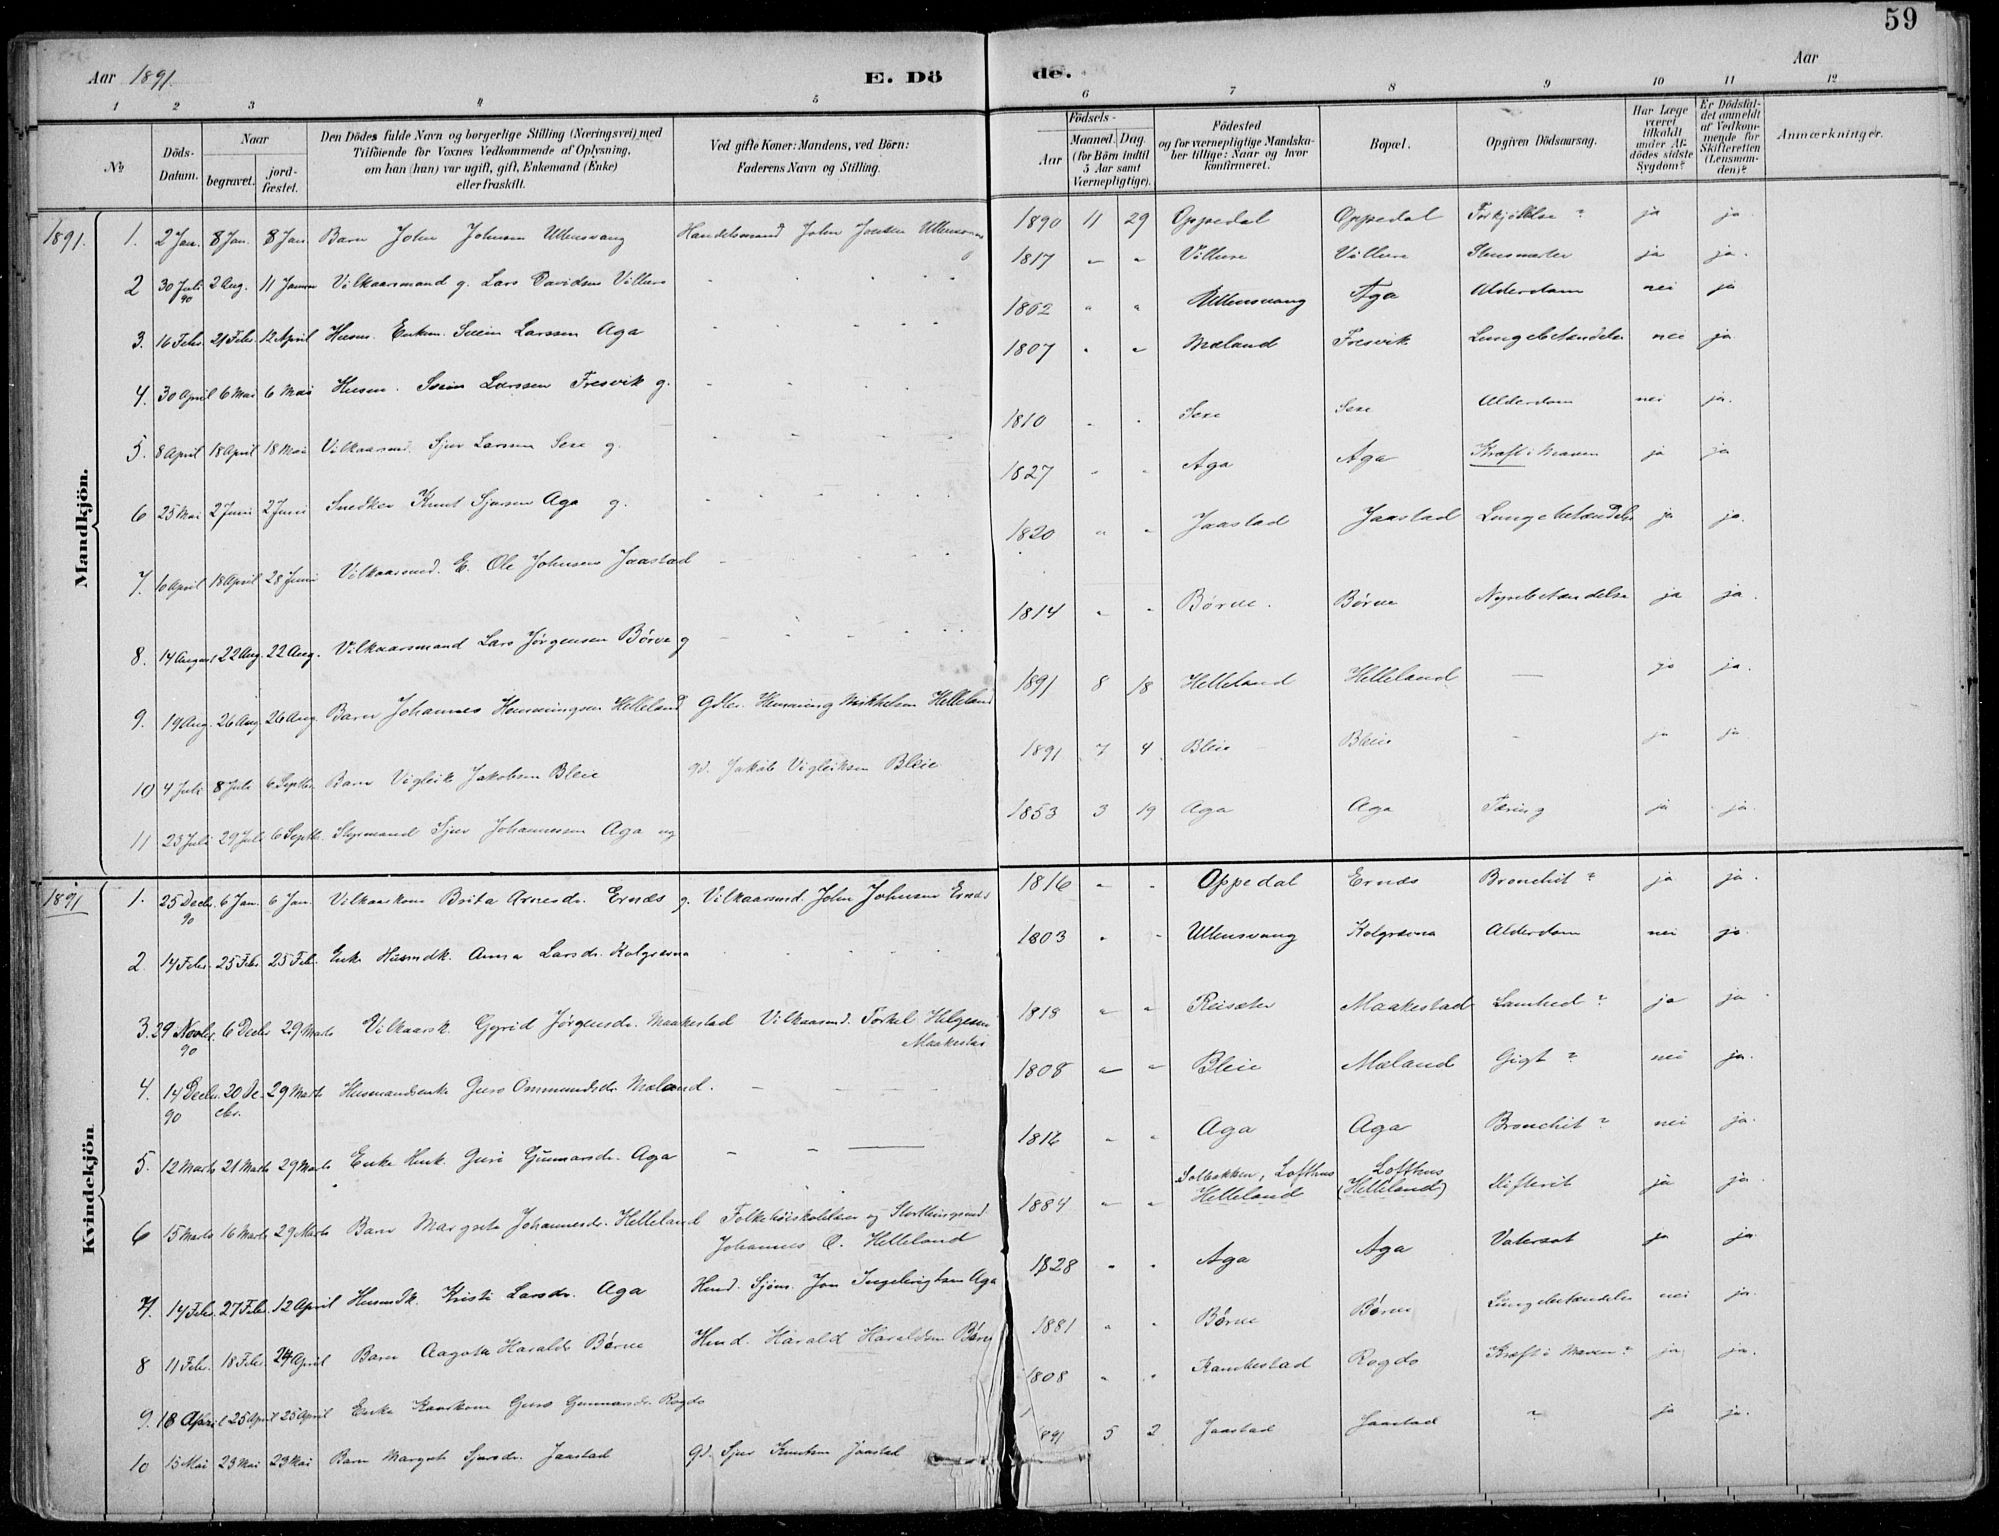 59
Aar 1891. E. Dö de. Aar
1 2 3 4 5 6 7 8 9 10 11 12
No Döds-Datum. Naar begravet. jordfæstet. Den Dödes fulde Navn og borgerlige Stilling (Næringsvei) med Tilföiende for Voxnes Vedkommende af Oplysning, om han (hun) var ugift, gift, Enkemand (Enke) eller fraskilt. Ved gifte Koner: Mandens, ved Börn: Faderens Navn og Stilling. Födsels- Aar Maaned. Dag. (for Börn indtil 5 Aar samt Værnepligtige). Födested og for værnepligtige Mandskaber tillige: Naar og hvor konfirmeret. Bopæl. Opgiven Dödsaarsag. Har Læge været tilkaldt under Afdödes sidste Sygdom? Er Dödsfaldet anmeldt af Vedkommende for Skifteretten (Lensmanden)? Anmærkninger.
Mandkjön.
1891. 1. 2 Jan. 8 Jan. 8 Jan. Barn John Johnsen Ullensvang Handelsmand John Ullensvang 1890 11 29 Oppedal Oppedal Forkjølelse ? ja ja
2 30 Juli 90 2 Aug. 11 Januar Vilkaarsmand g. Lars Davidsen Villure 1817 " " Villure Villure ja ja.
3. 16 Febr. 21 Febr. 12 April Husm. Enkem. Svein Larssen Aga 1802 " " Ullensvang Aga Alderdom nei ja
4. 30 April 6 Mai 6 Mai Husm. Svein Larssen Fresvik g. 1807 " " Mæland Fresvik Lungebetændelse nei ja
5. 8 April 18 April 18 Mai Vilkaarsmd. Sjur Larssen Sexe g. 1810 " " Sexe Sexe Alderdom nei ja.
6 25 Mai 2 Juni 2 Juni Snedker Knut Sjursen Aga g. 1827 " " Aga Aga Kræft i Maven ja ja
7. 10 April 18 April 28 Juni Vilkaarsmd. E. Ole Johnsen Jaastad 1820 " " Jaastad Jaastad Lungebetændelse ja ja.
8. 14 August 22 Aug. 22 Aug. Vilkaarsmand Lars Jørgensen Børve g 1814 " " Børve. Børve Nyrebetændelse ja ja.
9. 19 Aug. 26 Aug. 26 Aug. Barn Johannes Henningsen Helleland Gdbr. Henning Mikkelsen Helleland 1891 8 18 Helleland Helleland — ja ja.
10 4 Juli 8 Juli 6 Septbr. Barn Vigleik Jakobsen Bleie gd. Jakob Vigleiksen Bleie 1891 7 4 Bleie Bleie - ja ja.
11 25 Juli 29 Juli 6 Septbr. Styrmand Sjur Johannessen Aga ug 1853 3 19 Aga Aga Tæring ja ja.
Kvindekjön
1891 1. 25 Decbr. 90 6 Jan. 6 Jan. Vilkaarskone Brita Arnesdr. Ernes g. Vilkaarsmd. John Johnsen Ernes 1816 " " Oppedal Ernes Bronchit ? ja ja.
2. 14 Febr. 25 Febr. 25 Feb. Enke Husmdk. Anna Larsdr. Kolgravna 1803 " " Ullensvang Kolgravna Alderdom nei ja.
3. 29 Novbr. 90 6 Decbr 29 Marts Vilkaarsk. Gyrid Jørgensdr. Maakestad Vilkaarsmd. Torkel Helgesen Maakestad 1818 " " Reisæter Maakestad Lamhed ? ja ja
4. 14 Decbr. 90 20 Decbr. 29 Marts Husmandsenke Guro Ommundsdr. Mæland. 1808 " " Bleie Mæland Gigt ? nei ja.
5. 12 Marts 21 Marts 29 Marts Enke Husk. Guri Gunnarsdr. Aga 1816 " " Aga Aga Bronchit ? nei ja.
6 15 Marts 16 Marts 29 Marts Barn Margreta Johannesdr. Helleland Folkehøiskolelærer og Storthingsmd. Johannes O. Helleland 1884 " " Solbakken, Lofthus Helleland Lofthus (Helleland) Difterit ja ja
7. 14 Febr. 27 Febr. 12 April Husmdk. Kristi Larsdr. Aga Husmd. Sjøm. Jon Ingebrigtsen Aga 1828 " " Aga Aga Vatersot ja ja
8 11 Febr. 18 Febr. 24 April Barn Aagota Haraldsdr Børve Husmd. Harald Haraldsen Børve 1881 " " Børve Børve Lungebetændelse nei ja.
9. 18 April 25 April 25 April Enke Kaarkone Guro Gunnarsdr. Rogdo 1808 " " Kambestad Rogdo Kræft i Maven ? ja ja.
10 15 Mai 23 Mai 23 Mai Barn Margrete Sjursdr. Jaastad gd. Sjur Knutsen Jaastad 1891 5 2 Jaastad Jaastad ? ja ja.